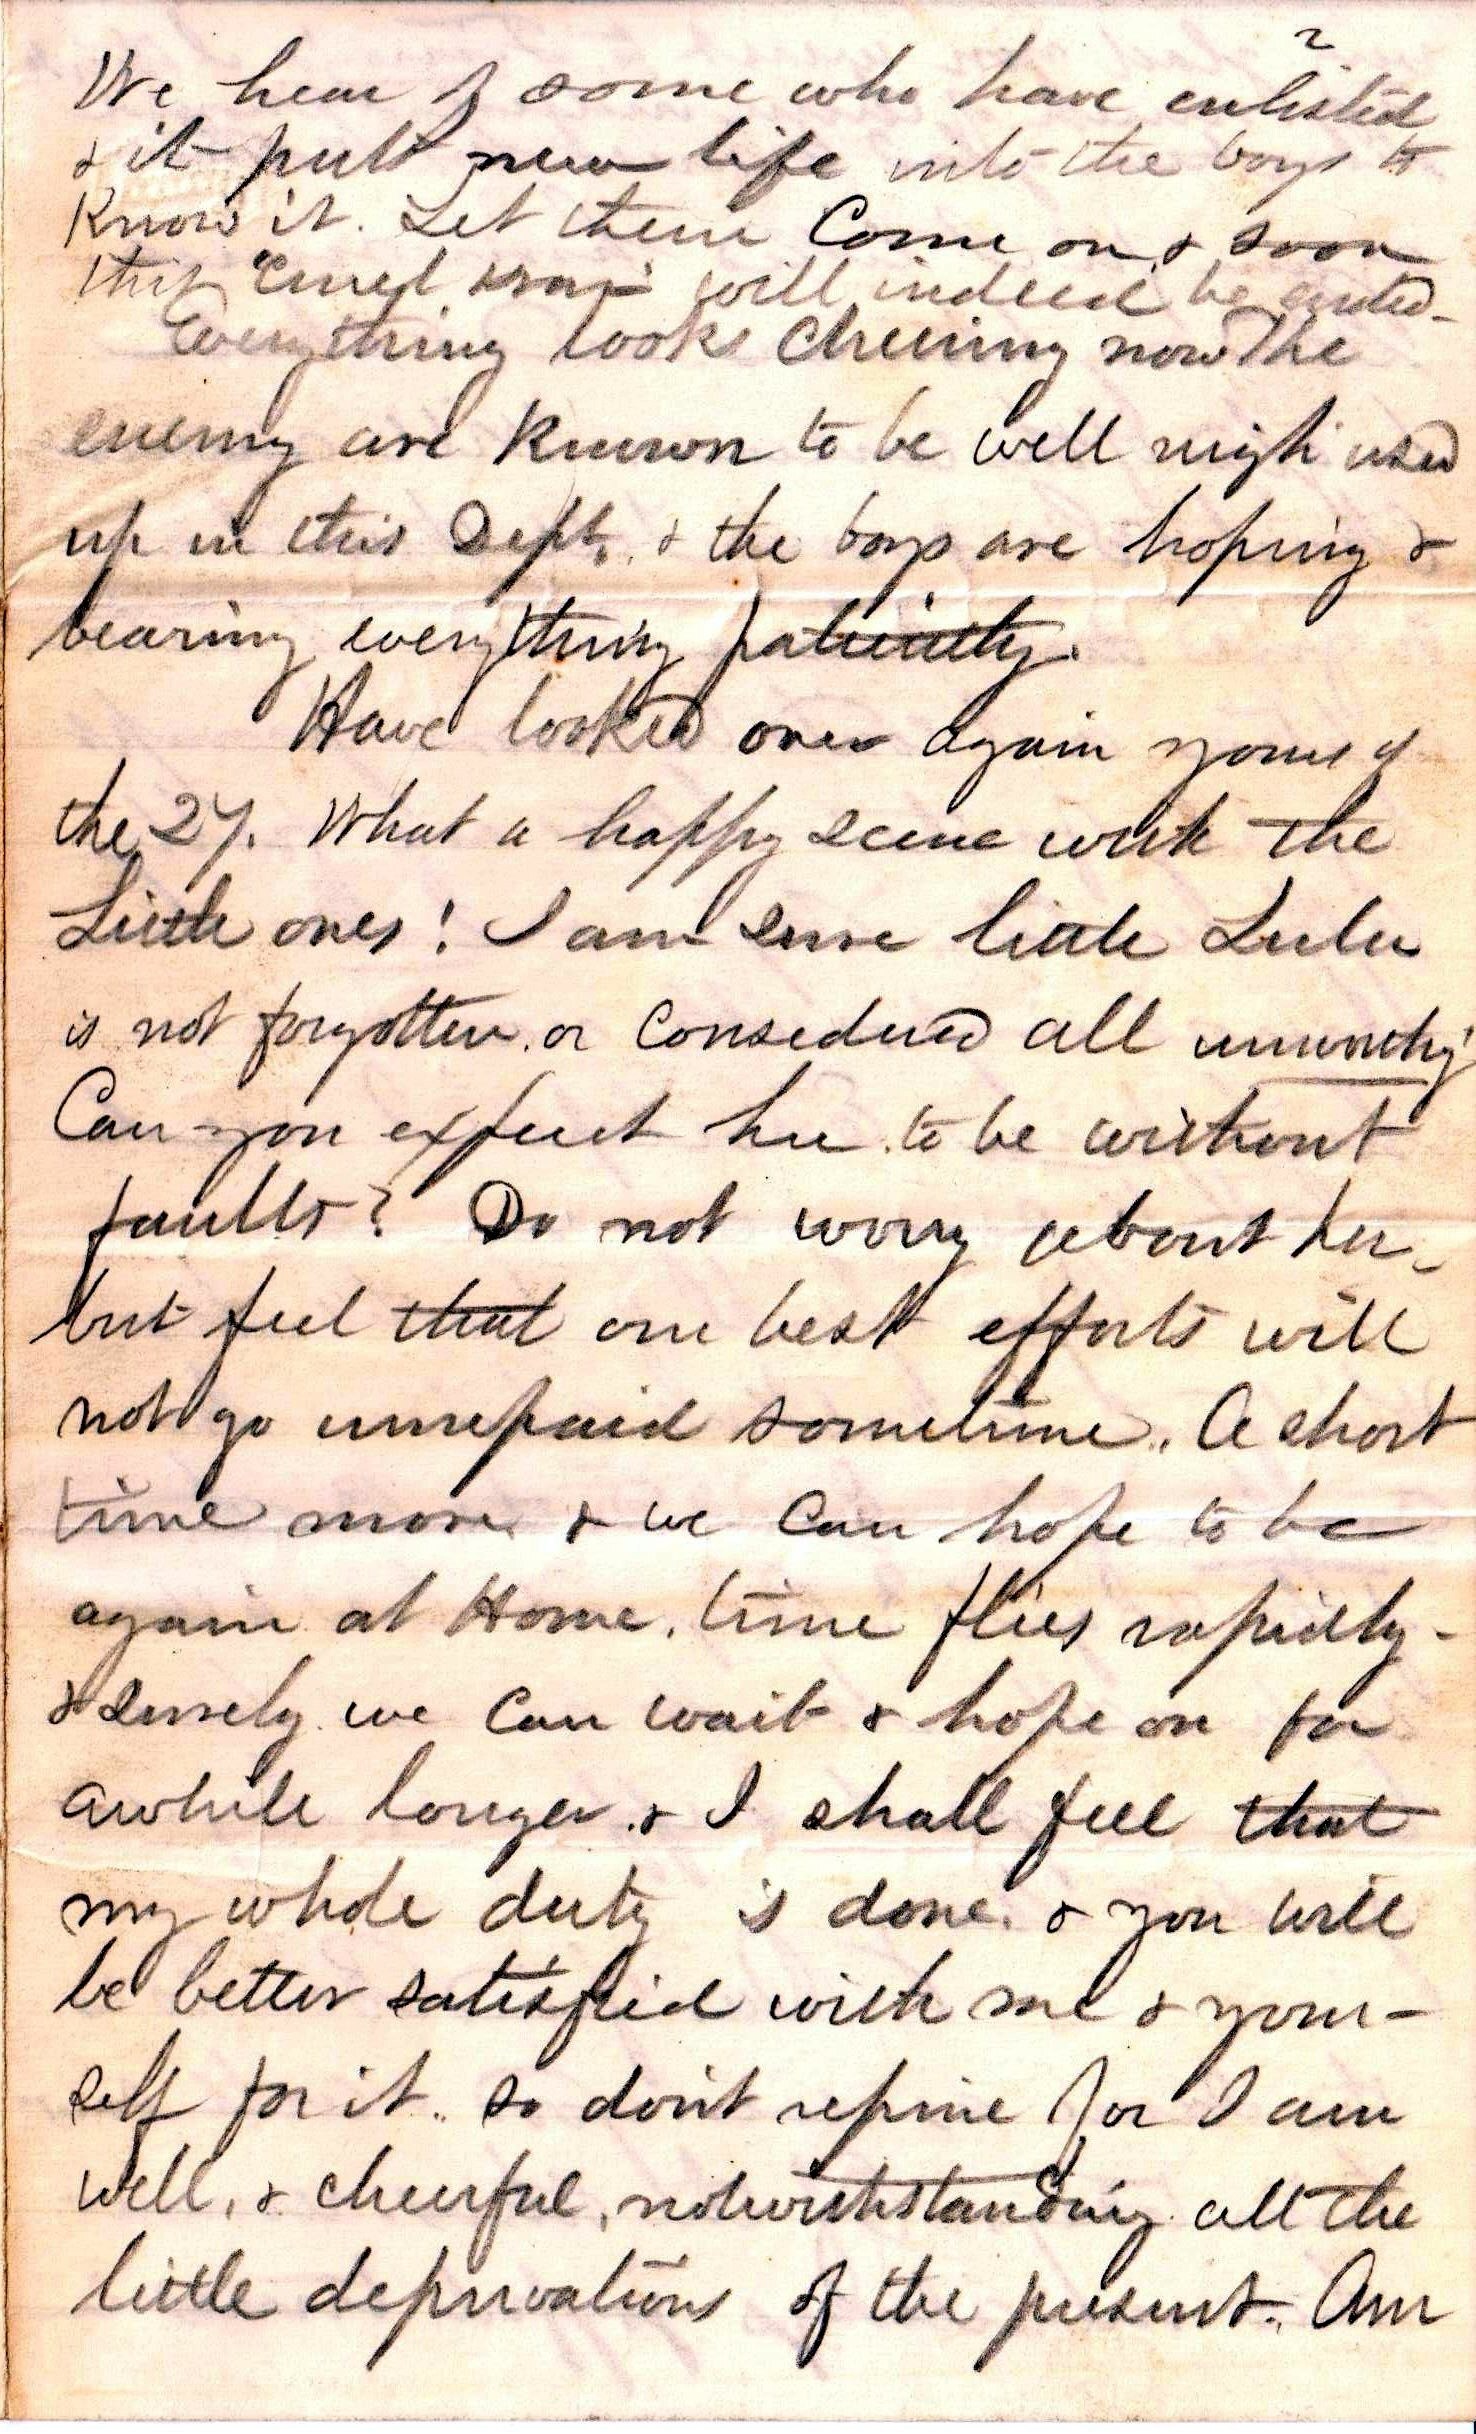 2
We hear of some who have enlisted
& it puts new life into the boys to
Know it. Let them Come on & soon
this "Cruel war" will indeed be ended-
Everything looks Cheering now The
enemy are Known to be well nigh used
up in this Dept. & the boys are hoping &
bearing everything patiently.
Have looked over again yours of
the 27. What a happy scene with the
Little ones! I am sure little Lulu
is not forgotten. or Considered all unworthy
Can you expect her to be without
faults? Do not worry about her-
but feel that our best efforts will
not go unrepaid sometime. A short
time more & we Can hope to be
again at Home. time flies rapidly-
& surely we Can wait & hope on for
awhile longer. & I shall feel that
my whole duty is done. & you will
be better satisfied with me & your-
self for it. so don't repine for I am
well, & cheerful, notwithstanding all the
little deprivations of the present. Am